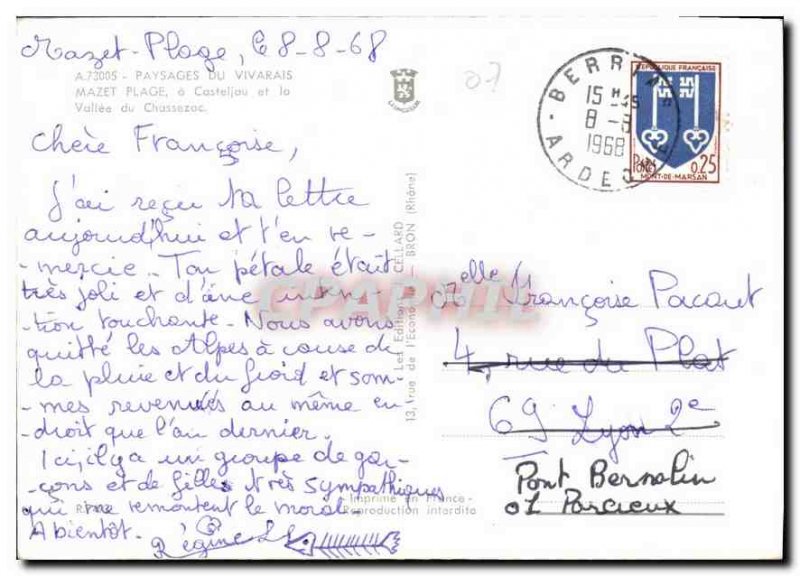 Mazet-Plage, le 8-8-68
A.73005 - PAYSAGES DU VIVARAIS
MAZET PLAGE, à Casteljau et la
Vallée du Chassezac.
07
Chère Françoise,
J'ai reçu ta lettre
aujourd'hui et t'en re-
-mercie. Ton pétale était
très joli et d'une inten-
-tion touchante. Nous avons
quitté les Alpes à cause de
la pluie et du froid et som-
-mes revenues au même en-
-droit que l'an dernier.
Ici, il y a un groupe de gar-
-çons et de filles très sympathiques
qui me remontent le moral.
A bientôt.
Régine
Les Editions CELLARD
13, rue de l'Economie - BRON (Rhône)
Imprimé en France -
Reproduction interdite
CPAPHIL
BERRIAS
15 H 45
8 - 8
1968
ARDECHE
REPUBLIQUE FRANÇAISE
POSTES
0,25
MONT-DE-MARSAN
Melle Françoise Pacaut
4, rue du Plat
69 Lyon 2e
Pont Bernalin
01 Parcieux